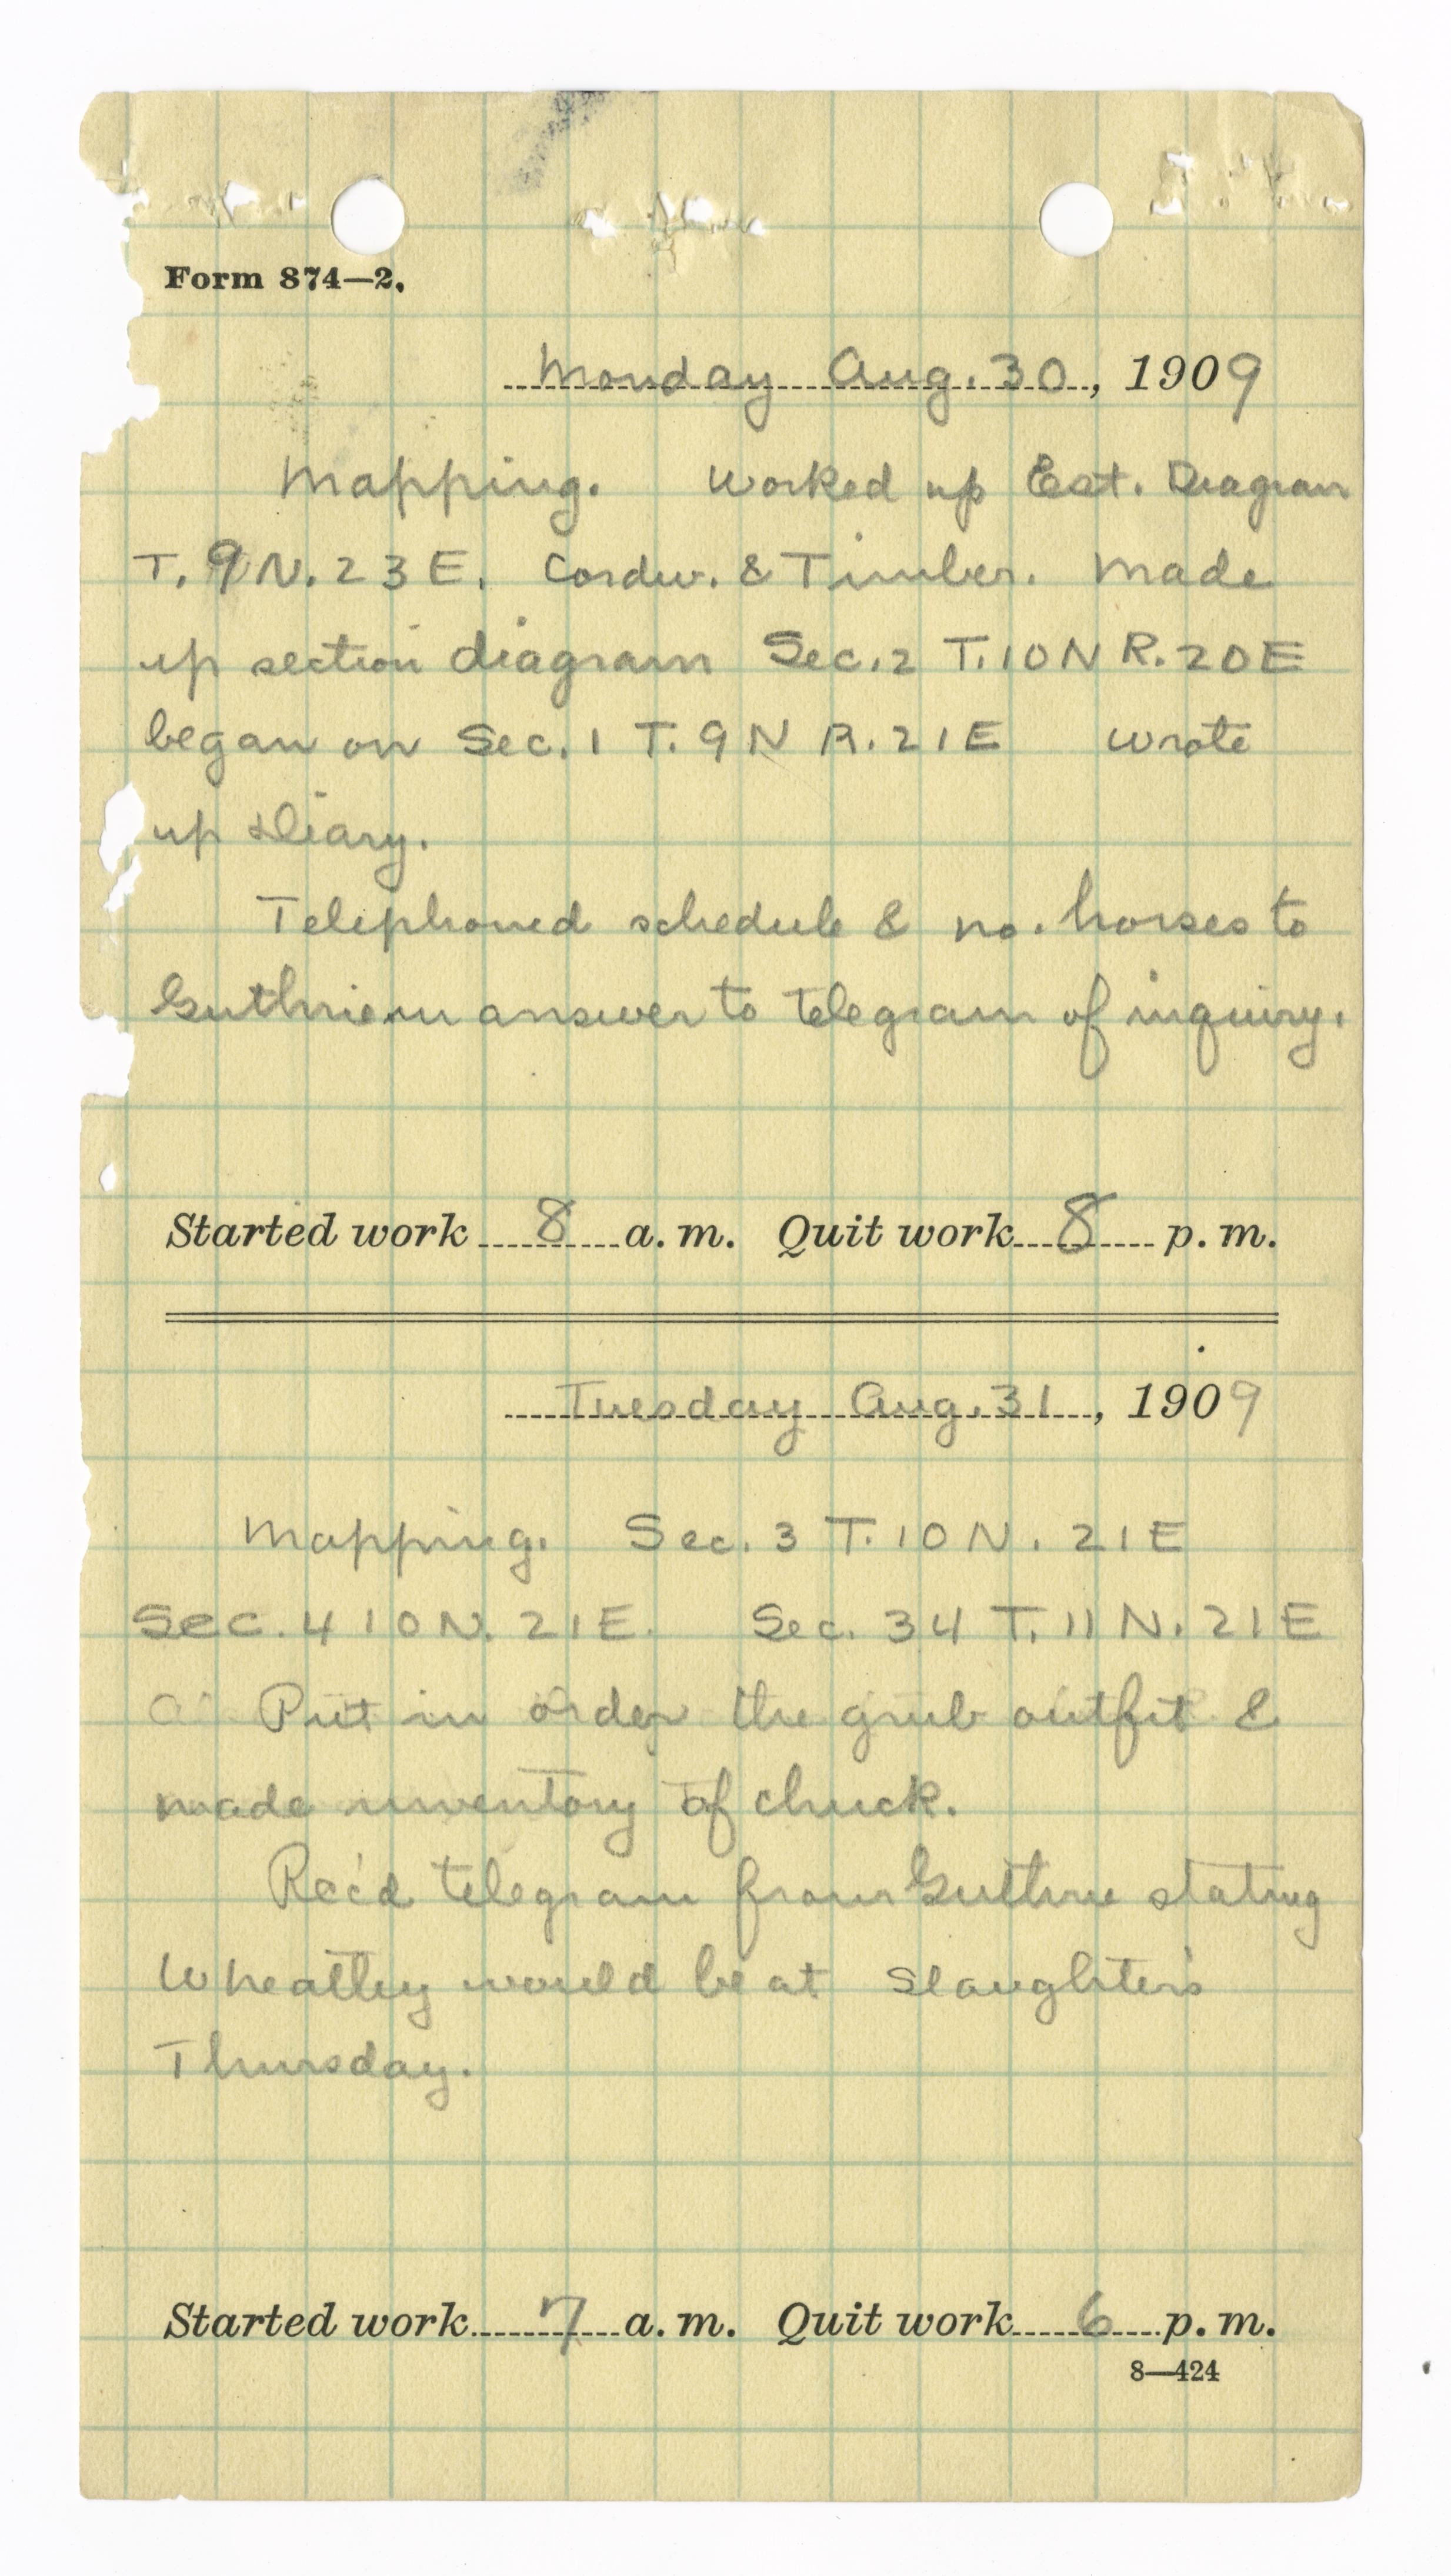 Form 874—2.
Monday Aug. 30, 1909
Mapping. Worked up Est. Diagram
T. 9 N. 23 E. Cordw. & Timber. Made
up section diagram Sec. 2 T. 10 N R. 20 E
began on Sec. 1 T. 9 N R. 21 E wrote
up Diary.
Telephoned schedule & no. horses to
Guthrie in answer to telegram of inquiry.
Started work 8 a. m. Quit work 8 p. m.
Tuesday Aug. 31, 1909
Mapping. Sec. 3 T. 10 N. 21 E
Sec. 4 10 N. 21 E. Sec. 34 T. 11 N. 21 E
Put in order the grub outfit &
made inventory of chuck.
Rec'd telegram from Guthrie stating
Wheatley would be at Slaughter's
Thursday.
Started work 7 a. m. Quit work 6 p. m.
8—424